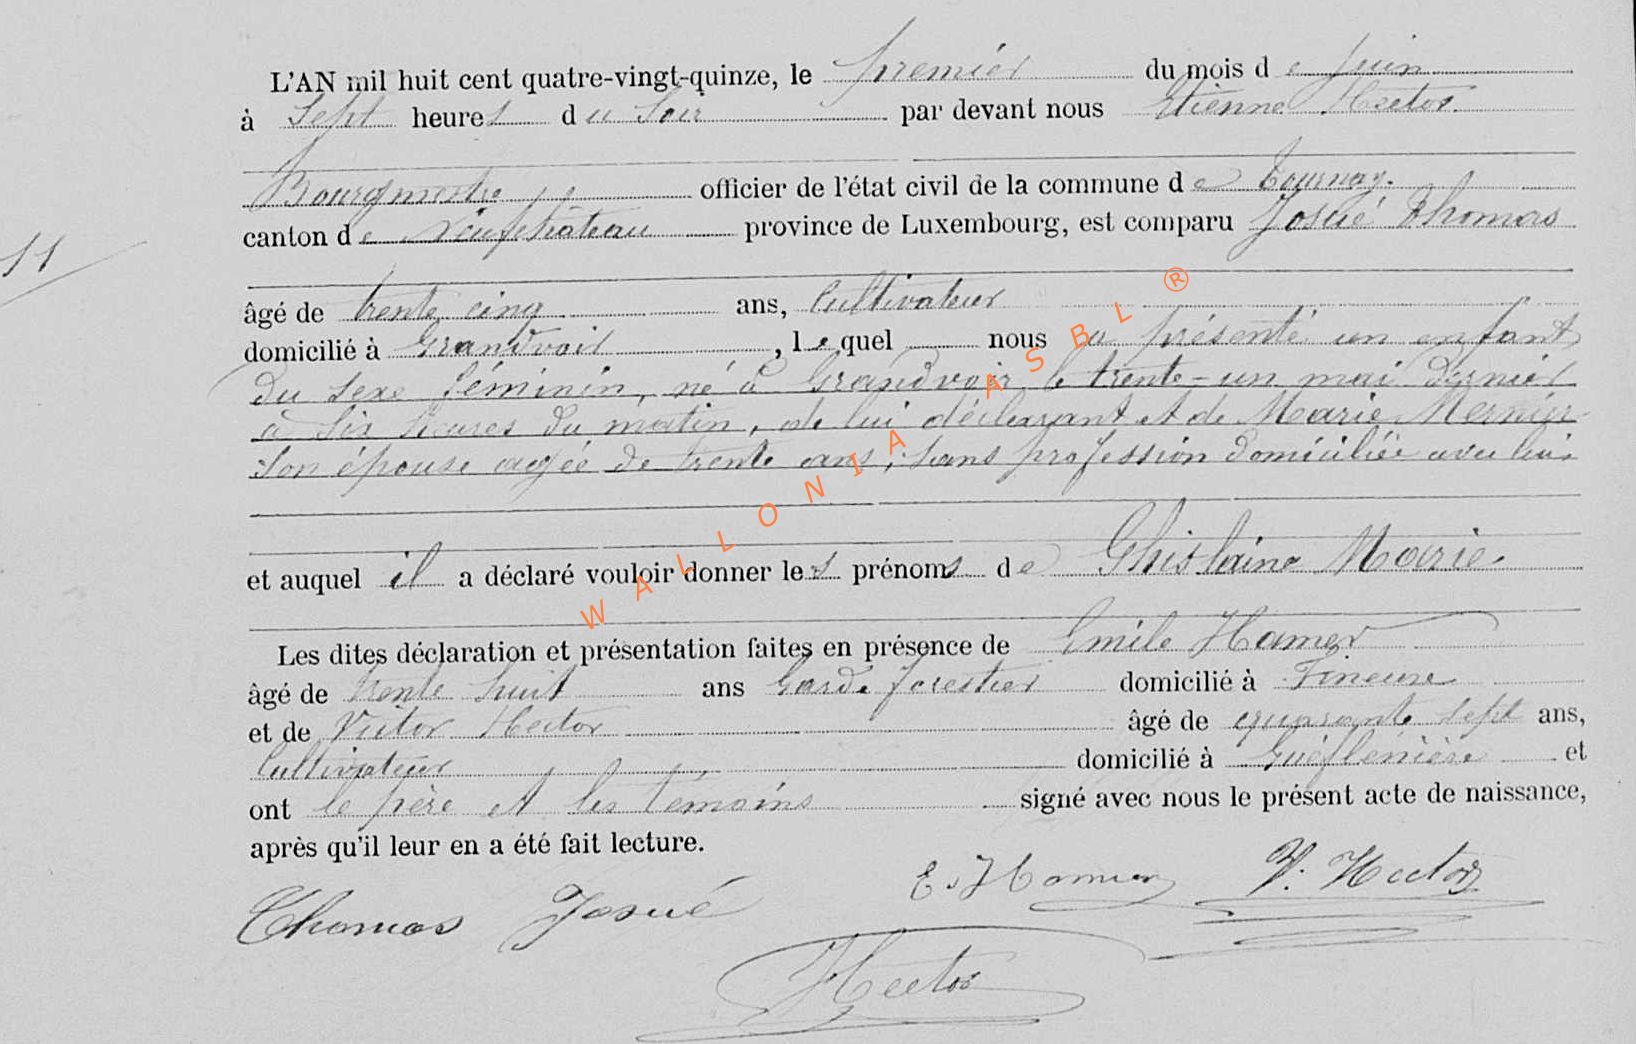 L'AN mil huit cent quatre-vingt-quinze, le premier du mois de juin
à Sept heures du Soir par devant nous Etienne Hector.
Bourgmestre officier de l'état civil de la commune de Tournay.
canton de Neufchâteau province de Luxembourg, est comparu Josué Thomas
11
âgé de trente cinq ans, Cultivateur
domicilié à Grandvoir, lequel nous a présenté un enfant
du sexe féminin, né à Grandvoir, le trente-un mai dernier
à six heures du matin, de lui déclarant et de Marie Mernier
son épouse agée de trente ans, sans profession domiciliée avec lui.
et auquel il a déclaré vouloir donner les prénoms de Ghislaine Marie.
Les dites déclaration et présentation faites en présence de Emile Hamer
âgé de trente huit ans Garde forestier domicilié à Fineuse
et de Victor Hector âgé de quarante sept ans,
Cultivateur domicilié à et
ont le père et les témoins signé avec nous le présent acte de naissance,
après qu'il leur en a été fait lecture.
Thomas Josué E. Hamer V. Hector
Hector
WALLONIA ASBL ®